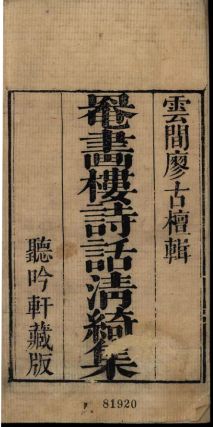 雲間廖古檀輯
罨畫樓詩話清綺集
聽吟軒藏版
81920